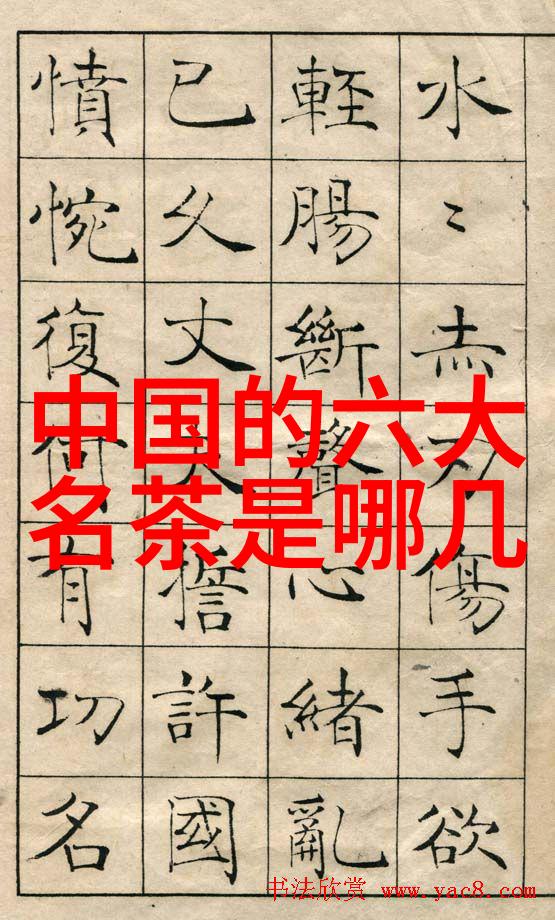 水〻赤刃傷手欲
輕腸斷聲心緒亂
已久丈夫誓許國
憤惋復何有功名
中国的六大
名茶是哪几
书法欣赏 www.yac8.com